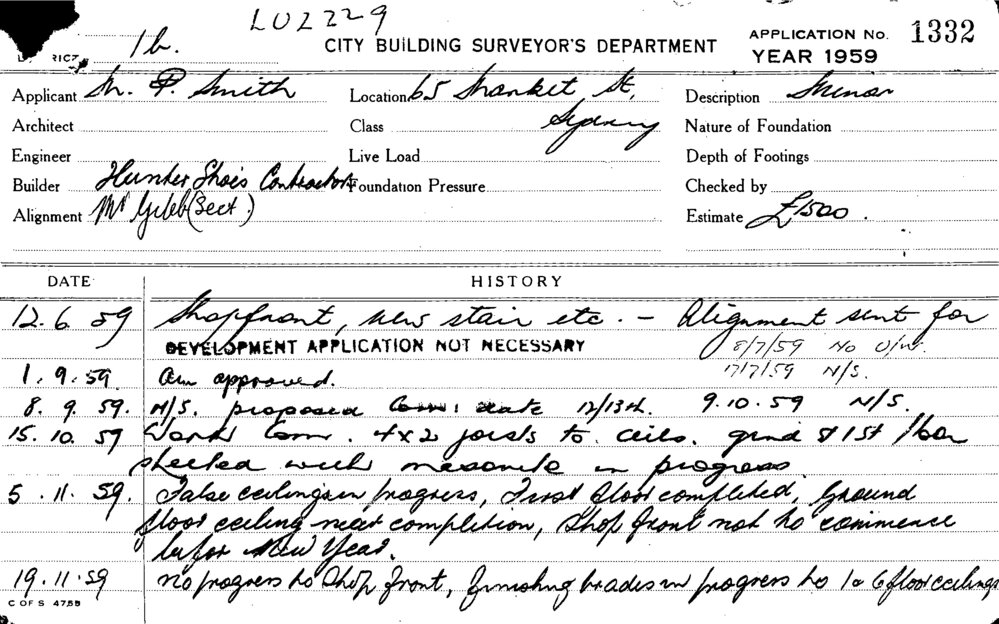 LU2229
1b.
CITY BUILDING SURVEYOR'S DEPARTMENT
APPLICATION No. 1332
YEAR 1959
Applicant Mr. P. Smith Location 65 Market St, Description Minor
Architect Class Sydney Nature of Foundation
Engineer Live Load Depth of Footings
Builder Hunter Shoes Contractors Foundation Pressure Checked by
Alignment Mr Gibb (Sect.) Estimate £1500.
DATE HISTORY
12.6.59 Shopfront, new stair etc. - Alignment sent for
DEVELOPMENT APPLICATION NOT NECESSARY 8/7/59 No O/W.
17/7/59 N/S.
1.9.59. approved.
8.9.59. N/S. proposed Com: date 12/13th. 9.10.59 N/S.
15.10.59 Work Com. 4x2 joists to ceils. grnd & 1st floor
sheeted with masonite in progress.
5.11.59. False ceilings in progress, First floor completed, Ground
floor ceiling near completion, Shop front not to commence
befor New Year.
19.11.59 no progress to Shop front, finishing trades in progress to 1 & G floor ceilings
C OF S 47.59